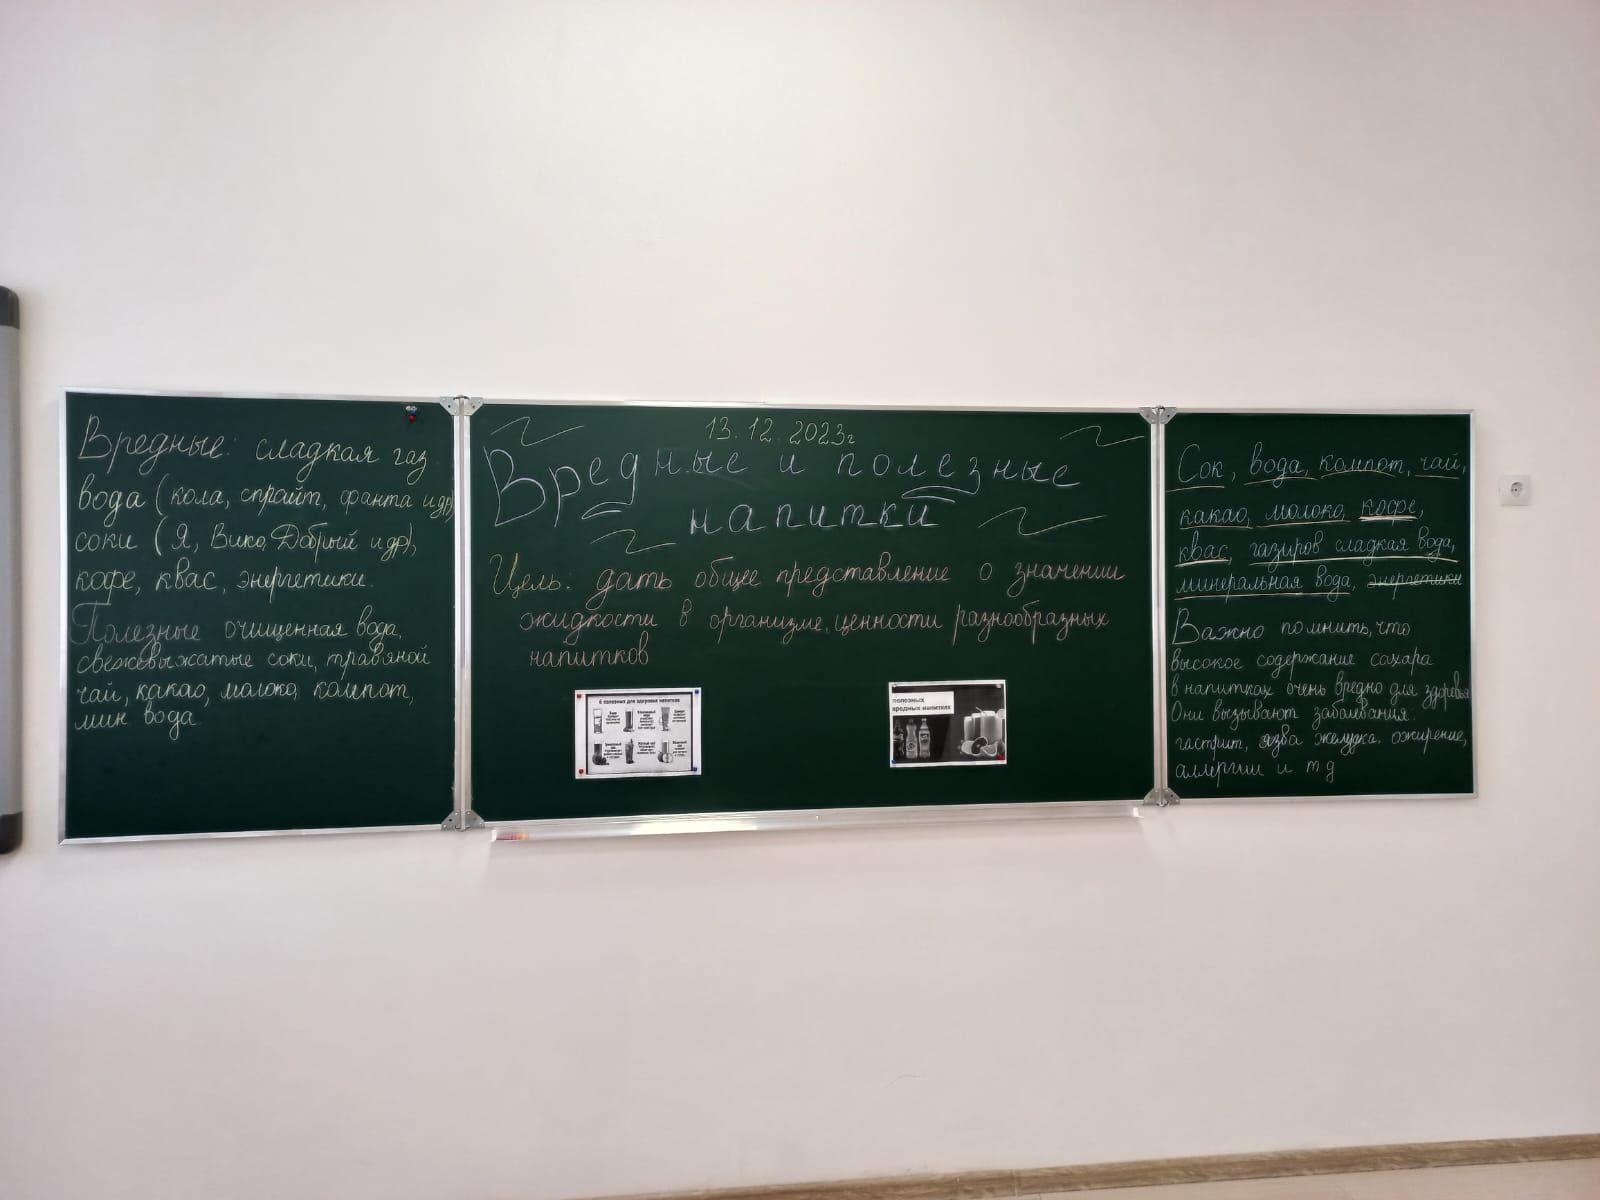 Вредные: сладкая газ.
вода (кола, спрайт, фанта и др)
соки (Я, Вико, Добрый и др),
кофе, квас, энергетики.
Полезные очищенная вода,
свежевыжатые соки, травяной
чай, какао, молоко, компот,
мин вода
13.12.2023г
Вредные и полезные
напитки
Цель: дать общее представление о значении
жидкости в организме, ценности разнообразных
напитков
6 полезных для здоровья напитков
полезных
вредных напитках
Сок, вода, компот, чай,
какао, молоко, кофе,
квас, газиров сладкая вода,
минеральная вода, энергетики
Важно помнить, что
высокое содержание сахара
в напитках очень вредно для здоровья
Они вызывают заболвания:
гастрит, язва желудка, ожирение,
аллергии и т д